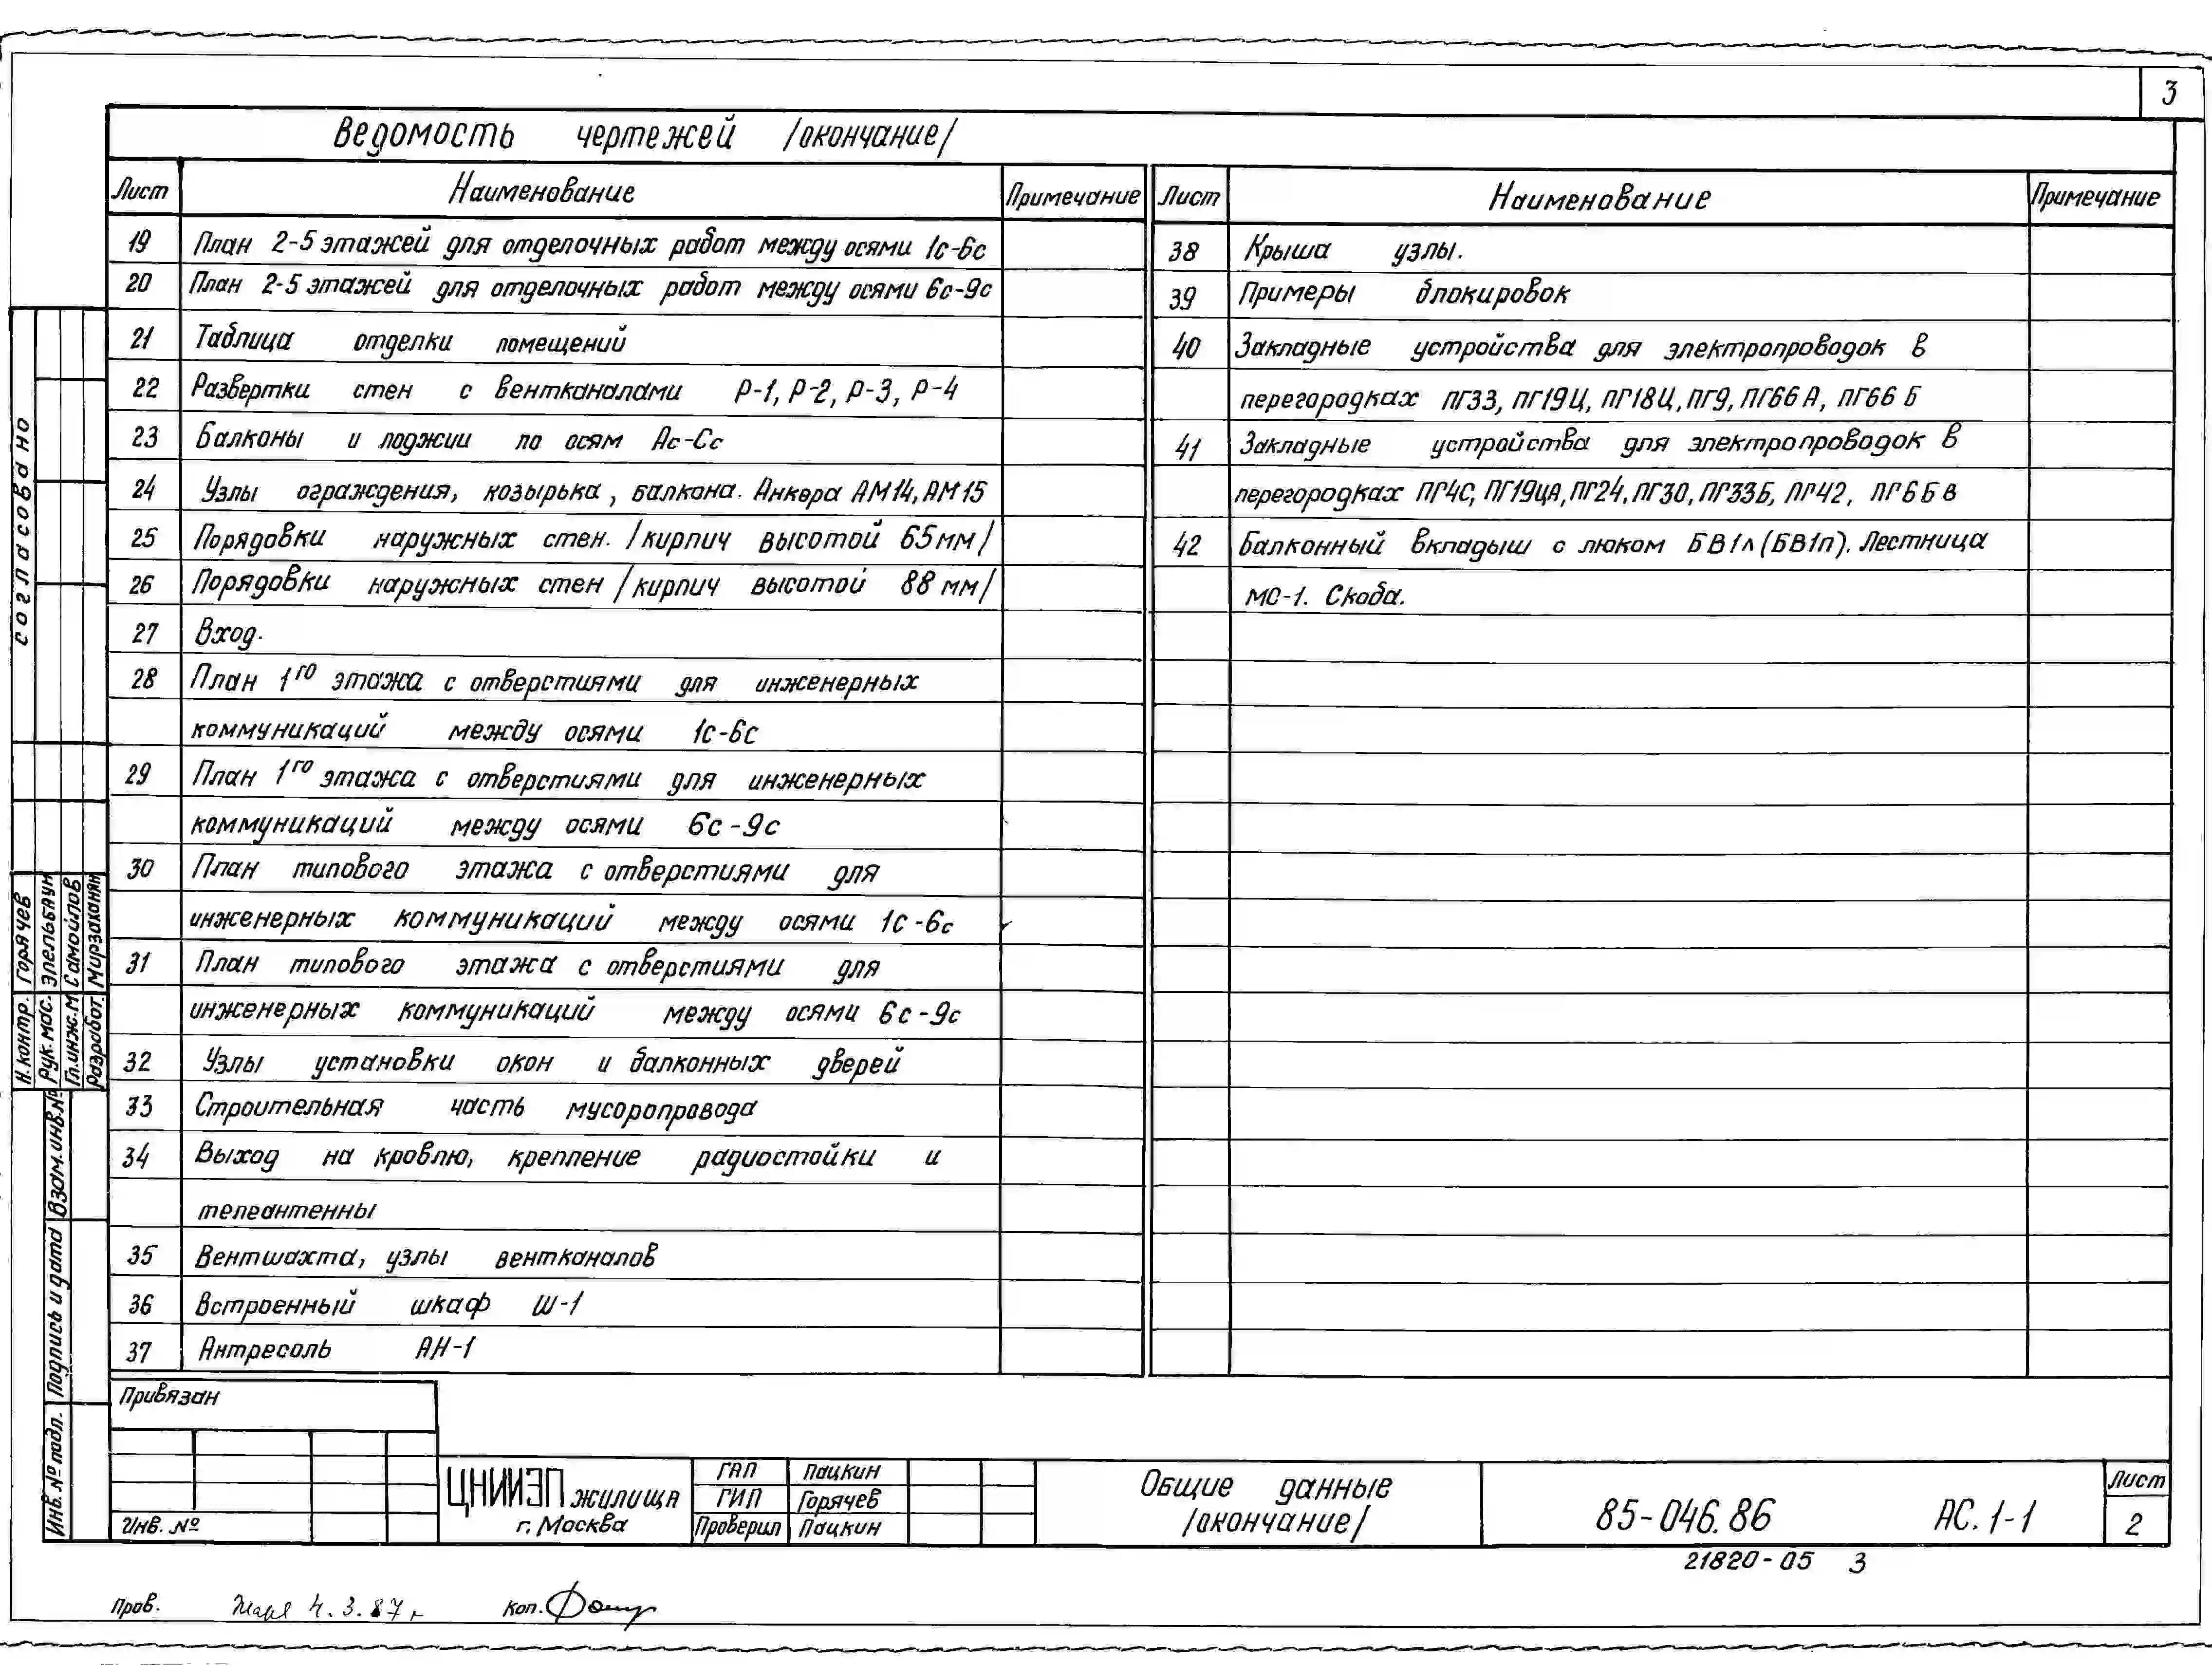 3
Ведомость чертежей /окончание/
Лист Наименование Примечание
19 План 2-5 этажей для отделочных работ между осями 1с-6с
20 План 2-5 этажей для отделочных работ между осями 6с-9с
21 Таблица отделки помещений
22 Развертки стен с вентканалами Р-1, Р-2, Р-3, Р-4
23 Балконы и лоджии по осям Ас-Сс
24 Узлы ограждения, козырька, балкона. Анкера АМ14, АМ15
25 Порядовки наружных стен. /кирпич высотой 65мм/
26 Порядовки наружных стен /кирпич высотой 88 мм/
27 Вход.
28 План 1го этажа с отверстиями для инженерных
коммуникаций между осями 1с-6с
29 План 1го этажа с отверстиями для инженерных
коммуникаций между осями 6с-9с
30 План типового этажа с отверстиями для
инженерных коммуникаций между осями 1с-6с
31 План типового этажа с отверстиями для
инженерных коммуникаций между осями 6с-9с
32 Узлы установки окон и балконных дверей
33 Строительная часть мусоропровода
34 Выход на кровлю, крепление радиостойки и
телеантенны
35 Вентшахта, узлы вентканалов
36 Встроенный шкаф Ш-1
37 Антресоль АН-1
Лист Наименование Примечание
38 Крыша узлы.
39 Примеры блокировок
40 Закладные устройства для электропроводок в
перегородках ПГ33, ПГ19Ц, ПГ18Ц, ПГ9, ПГ66А, ПГ66Б
41 Закладные устройства для электропроводок в
перегородках ПГ4С, ПГ19ЦА, ПГ24, ПГ30, ПГ33Б, ПГ42, ПГ66в
42 Балконный вкладыш с люком БВ1л (БВ1п). Лестница
МС-1. Скоба.
согласовано
Н.контр. Горячев
Рук.мас. Эпельбаун
Гл.инж.М Самойлов
Разработ. Мирзаханян
Взам.инв.№
Подпись и дата
Инв.№ подл.
Привязан
Инв. №
ЦНИИЭП жилища
г. Москва
ГАП Пацкин
ГИП Горячев
Проверил Пацкин
Общие данные
/окончание/
85-046.86 АС.1-1
Лист
2
21820-05 3
Пров. 4.3.87г
Коп.